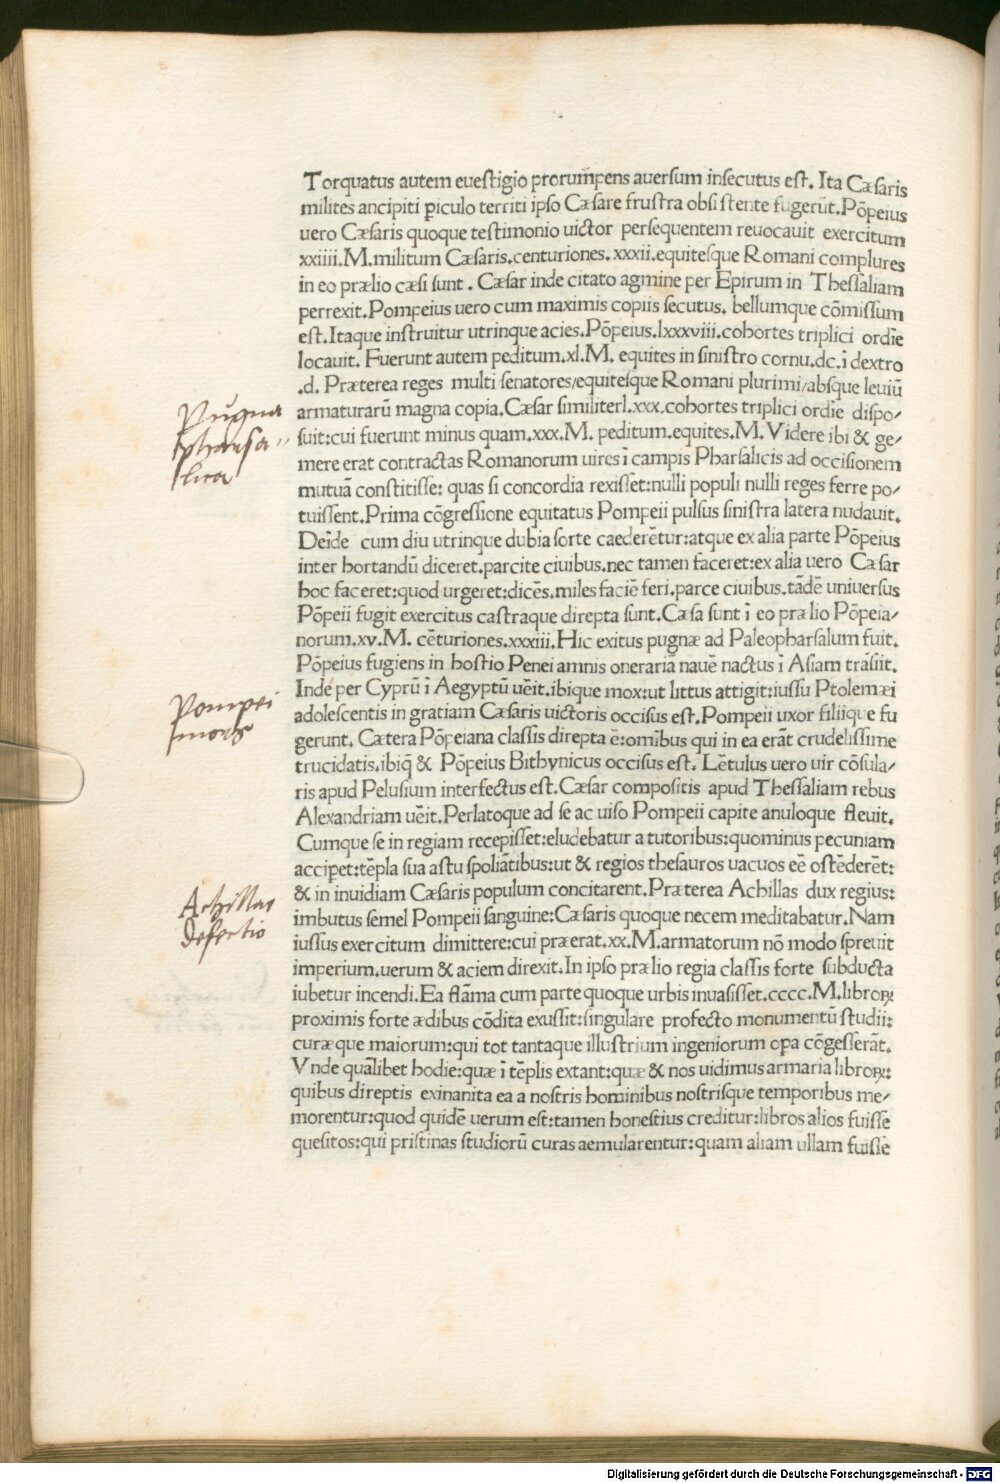 Torquatus autem euestigio prorum̃pens auersum insecutus est. Ita Cæsaris
milites ancipiti ꝑiculo territi ipso Cæsare frustra obsistente fugerũt. Põpeius
uero Cæsaris quoque testimonio uictor persequentem reuocauit exercitum
xxiiii. M. militum Cæsaris. centuriones. xxxii. equitesque Romani complures
in eo prælio cæsi sunt. Cæsar inde citato agmine per Epirum in Thessaliam
perrexit. Pompeius uero cum maximis copiis secutus. bellumque cõmissum
est. Itaque instruitur utrinque acies. Põpeius. lxxxviii. cohortes triplici ordĩe
locauit. Fuerunt autem peditum. xl. M. equites in sinistro cornu. dc. ĩ dextro
.d. Præterea reges multi senatores/equitesque Romani plurimi/absque leuiũ
armaturarũ magna copia. Cæsar similiter l.xxx. cohortes triplici ordĩe dispo/
suit: cui fuerunt minus quam. xxx. M. peditum. equites. M. Videre ibi & ge/
mere erat contractas Romanorum uires ĩ campis Pharsalicis ad occisionem
mutuã constitisse: quas si concordia rexisset: nulli populi nulli reges ferre po/
tuissent. Prima cõgressione equitatus Pompeii pulsus sinistra latera nudauit.
Deĩde cum diu utrinque dubia sorte caederẽtur: atque ex alia parte Põpeius
inter hortandũ diceret. parcite ciuibus. nec tamen faceret: ex alia uero Cæsar
hoc faceret: quod urgeret: dicẽs. miles faciẽ feri. parce ciuibus. tãdẽ uniuersus
Põpeii fugit exercitus castraque direpta sunt. Cæsa sunt ĩ eo prælio Põpeia/
norum. xv. M. cẽturiones. xxxiii. Hic exitus pugnæ ad Paleopharsalum fuit.
Põpeius fugiens in hostio Penei amnis onerariã nauẽ nactus ĩ Asiam trãsiit.
Inde per Cyprũ ĩ Aegyptũ uẽit. ibique mox: ut littus attigit: iussu Ptolemæi
adolescentis in gratiam Cæsaris uictoris occisus est. Pompeii uxor filiique fu
gerunt. Cætera Põpeiana classis direpta ẽ: omĩbus qui in ea erãt crudelissime
trucidatis. ibiq̃ & Põpeius Bithynicus occisus est. Lẽtulus uero uir cõsula/
ris apud Pelusium interfectus est. Cæsar compositis apud Thessaliam rebus
Alexandriam uẽit. Perlatoque ad se ac uiso Pompeii capite anuloque fleuit.
Cumque se in regiam recepisset: eludebatur a tutoribus: quominus pecuniam
acciꝑet: tẽpla sua astu spoliãtibus: ut & regios thesauros uacuos eẽ ostẽderẽt:
& in inuidiam Cæsaris populum concitarent. Præterea Achillas dux regius:
imbutus semel Pompeii sanguine: Cæsaris quoque necem meditabatur. Nam
iussus exercitum dimittere: cui præerat. xx. M. armatorum nõ modo spreuit
imperium. uerum & aciem direxit. In ipso prælio regia classis forte subducta
iubetur incendi. Ea flãma cum parte quoque urbis inuasisset. cccc. M. libroꝝ
proximis forte ædibus cõdita exussit: singulare profecto monumentũ studii:
curæque maiorum: qui tot tantaque illustrium ingeniorum oꝑa cõgesserãt.
Vnde quãlibet hodie: quæ ĩ tẽplis extant: quæ & nos uidimus armaria libroꝝ:
quibus direptis exinanita ea a nostris hominibus nostrisque temporibus me/
morentur: quod quidẽ uerum est: tamen honestius creditur: libros alios fuisse
quesitos: qui pristinas studiorũ curas aemularentur: quam aliam ullam fuisse
Pugna
phar̃sa-
lica
Pompei
mors
Achillas
defectio
Digitalisierung gefördert durch die Deutsche Forschungsgemeinschaft - DFG